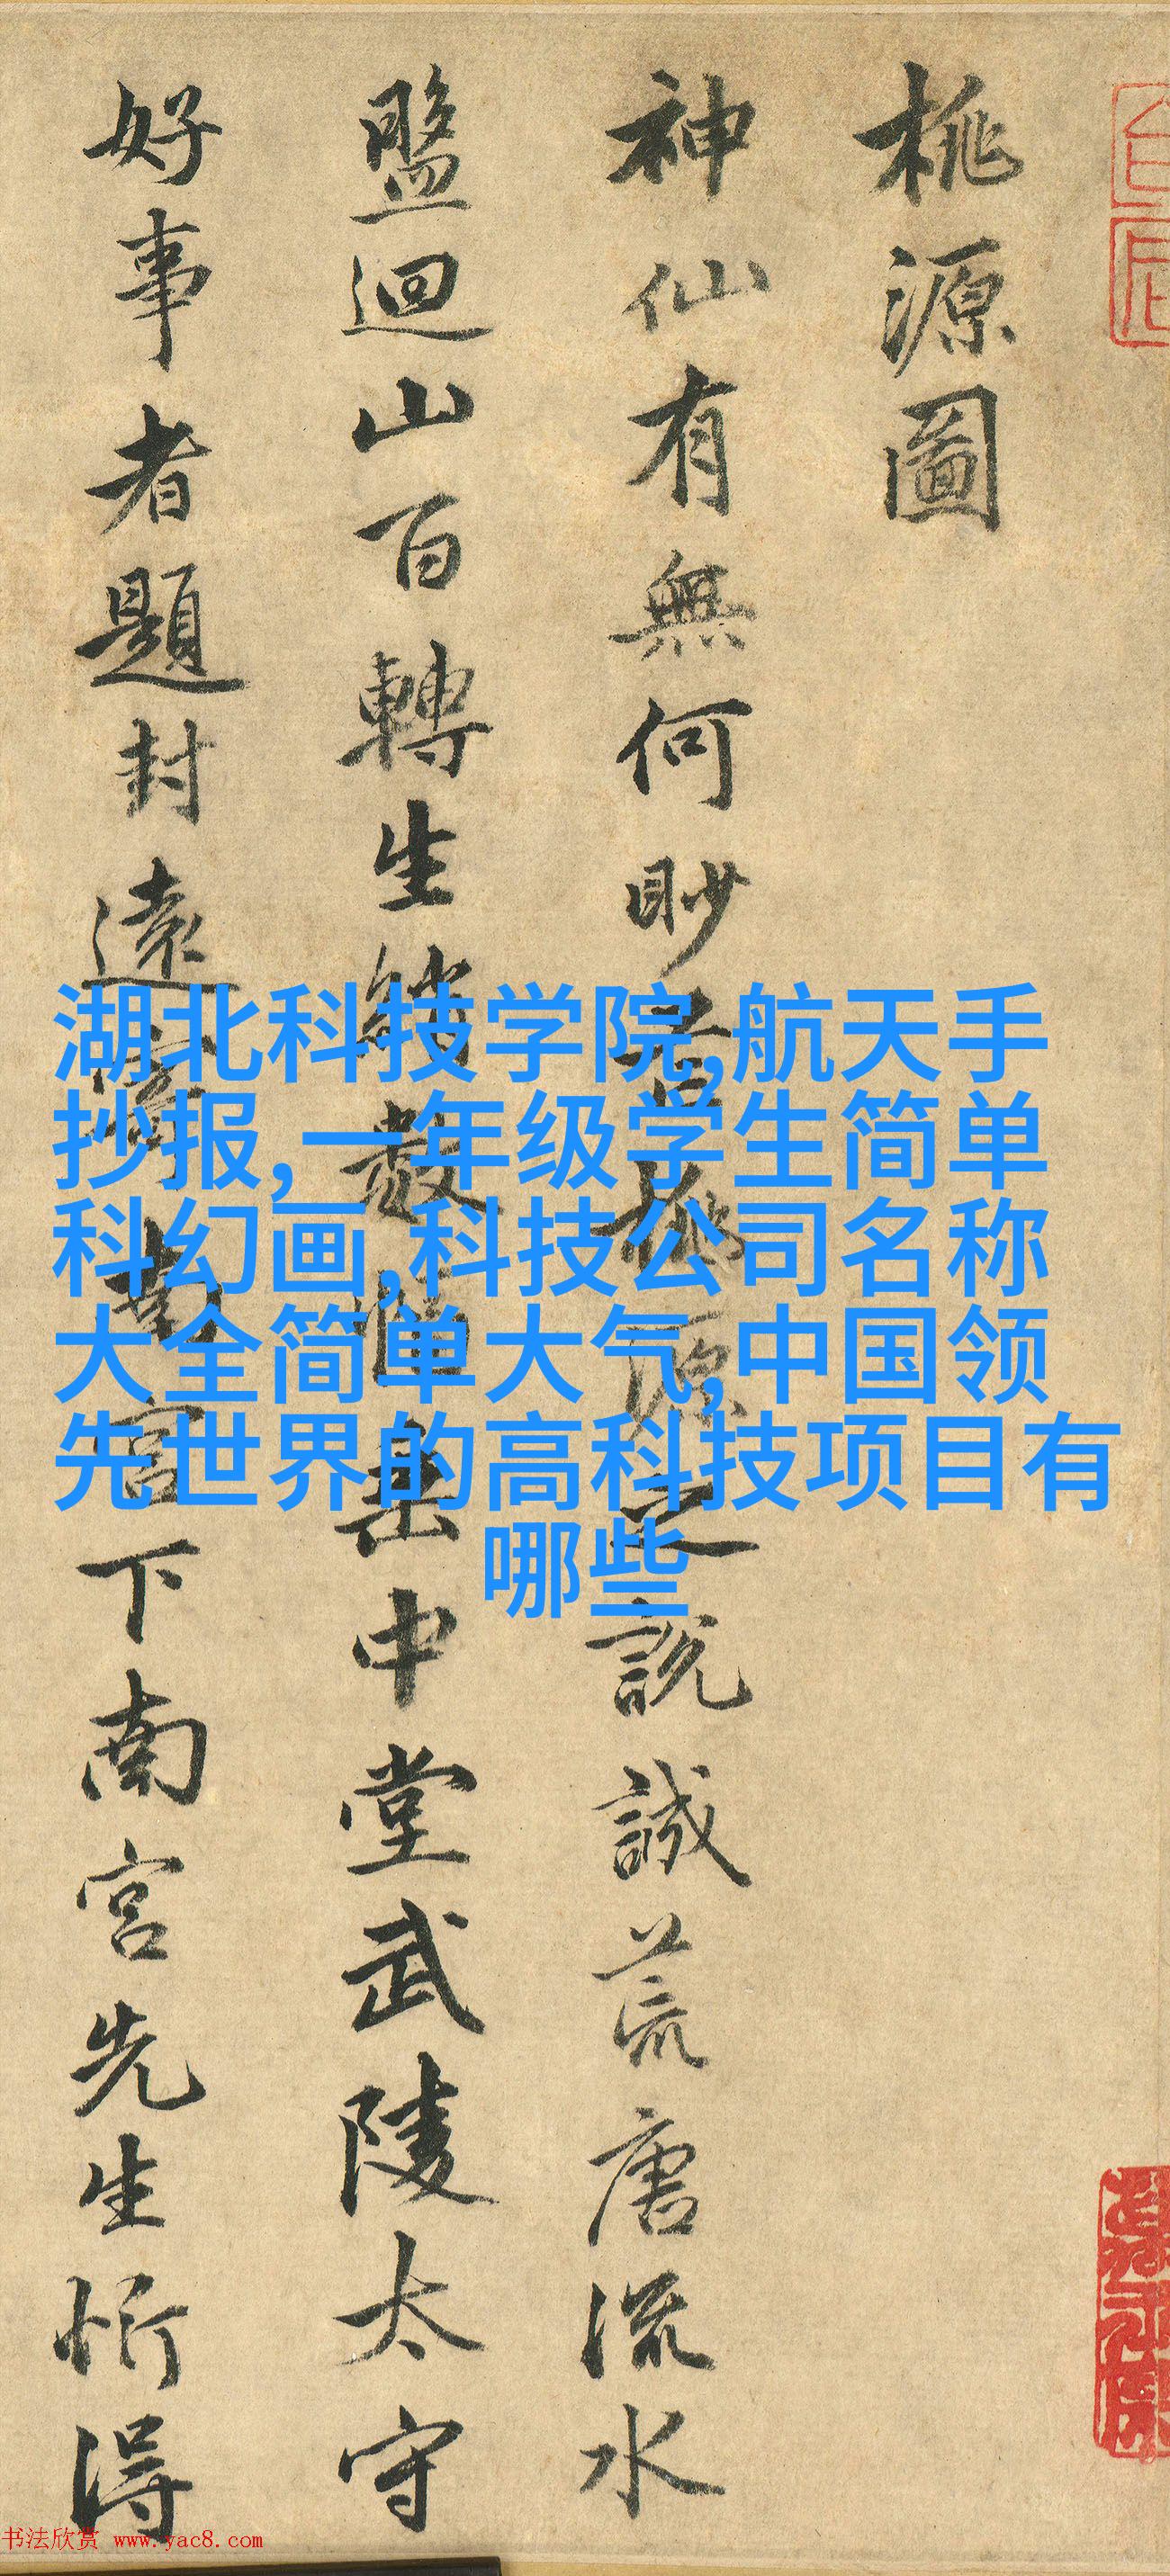 桃源圖
神仙有無何眇桃源之說誠荒唐流水
盤迴山百轉生綃數幅垂中堂武陵太守
好事者題封遠寄南宮下南宮先生忻得
湖北科技学院,航天手
抄报,一年级学生简单
科幻画,科技公司名称
大全简单大气,中国领
先世界的高科技项目有
哪些
书法欣赏 www.yac8.com